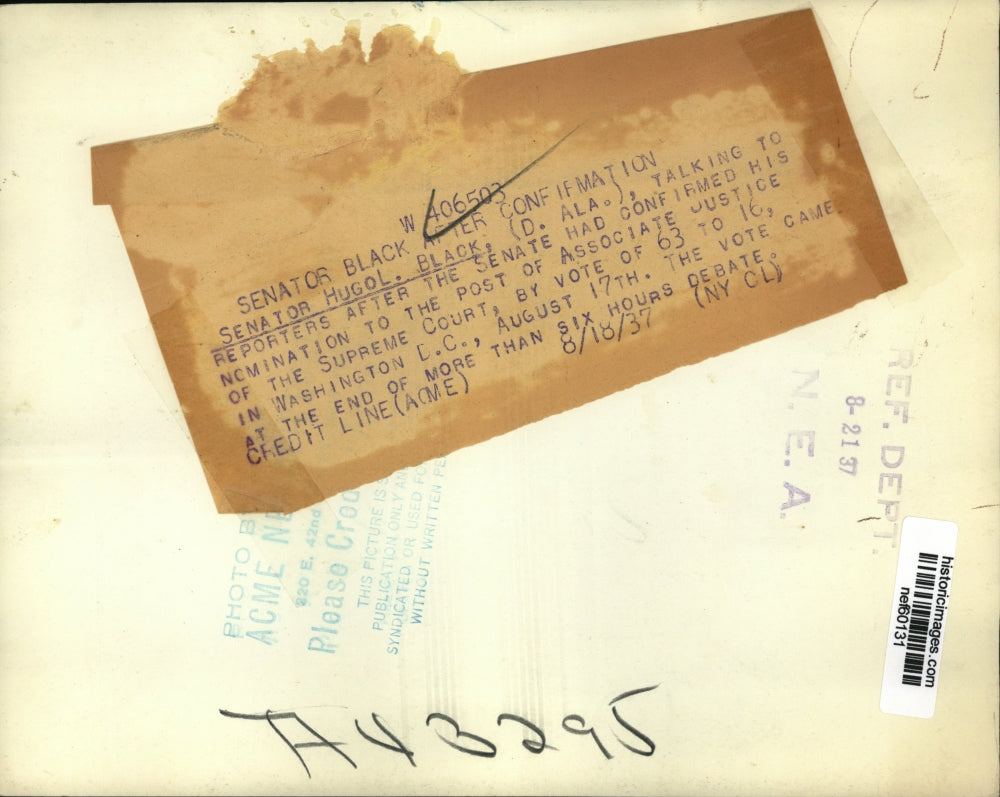 W 406503
SENATOR BLACK AFTER CONFIFMATION
SENATOR HUGOL. BLACK, (D. ALA.), TALKING TO
REPORTERS AFTER THE SENATE HAD CONFIRMED HIS
NOMINATION TO THE POST OF ASSOCIATE JUSTICE
OF THE SUPREME COURT, BY VOTE OF 63 TO 16,
IN WASHINGTON D.C., AUGUST 17TH. THE VOTE CAME
AT THE END OF MORE THAN SIX HOURS DEBATE.
CREDIT LINE (ACME) 8/18/37 (NY CL)
PHOTO B
ACME NE
220 E. 42nd
Please Cred
THIS PICTURE IS S
PUBLICATION ONLY AN
SYNDICATED OR USED FO
WITHOUT WRITTEN PE
REF. DEPT.
8-21 37
N. E. A.
historicimages.com
nef60131
A43295